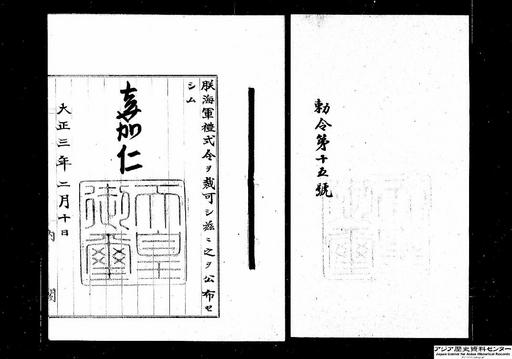 勅令第十五號
朕海軍禮式令ヲ裁可シ茲ニ之ヲ公布セ
シム
嘉仁
天皇
御璽
大正三年二月十日
内閣
アジア歴史資料センター
Japan Center for Asian Historical Records